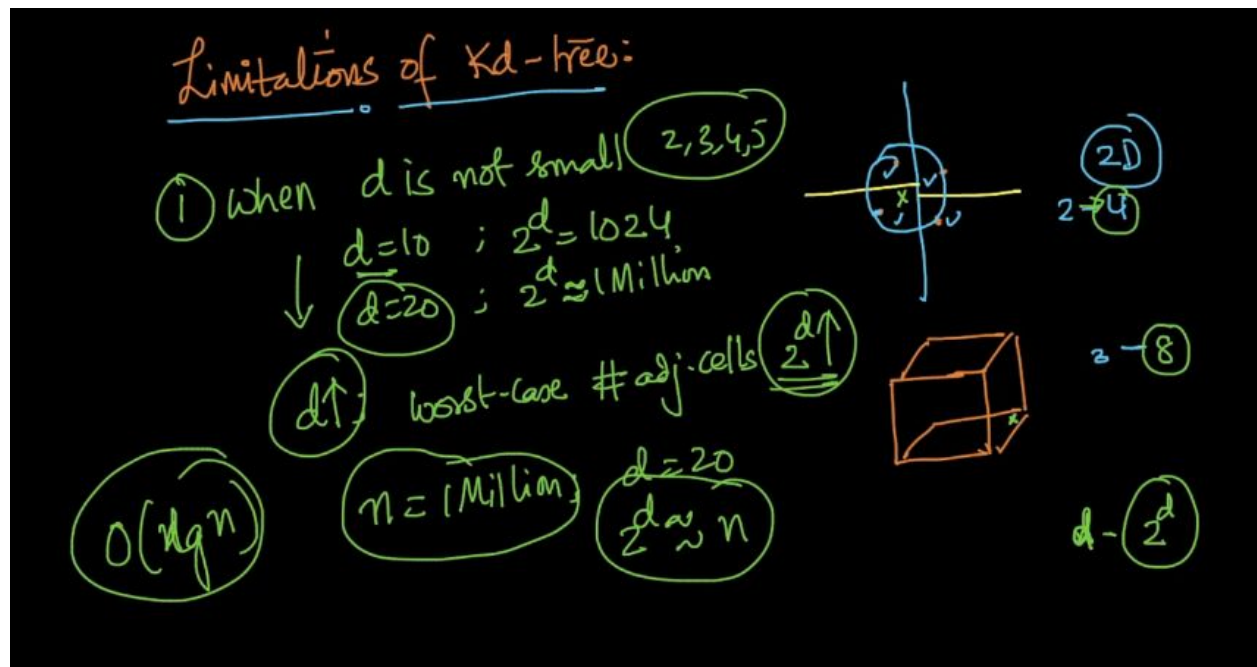 Limitations of Kd-tree:
① When d is not small 2,3,4,5
d=10 ; 2^d = 1024
d=20 ; 2^d ≈ 1 Million
d↑; worst-case # adj-cells 2^d↑
n = 1 Million, d=20
O(n lg n) 2^d ≈ n
2D
2 → 4
3 - 8
d - 2^d